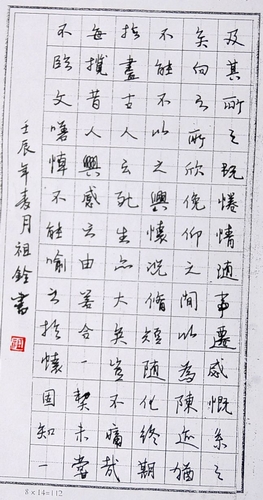 及其所之既惓情随事遷感慨系之
矣向之所欣俛仰之間以為陳迹猶
不能不以之興懷況脩短随化終期
於盡古人云死生亦大矣豈不痛哉
每攬昔人興感之由若合一契未嘗
不臨文嗟悼不能喻之於懷固知一
壬辰年春月祖銓書
8×14=112